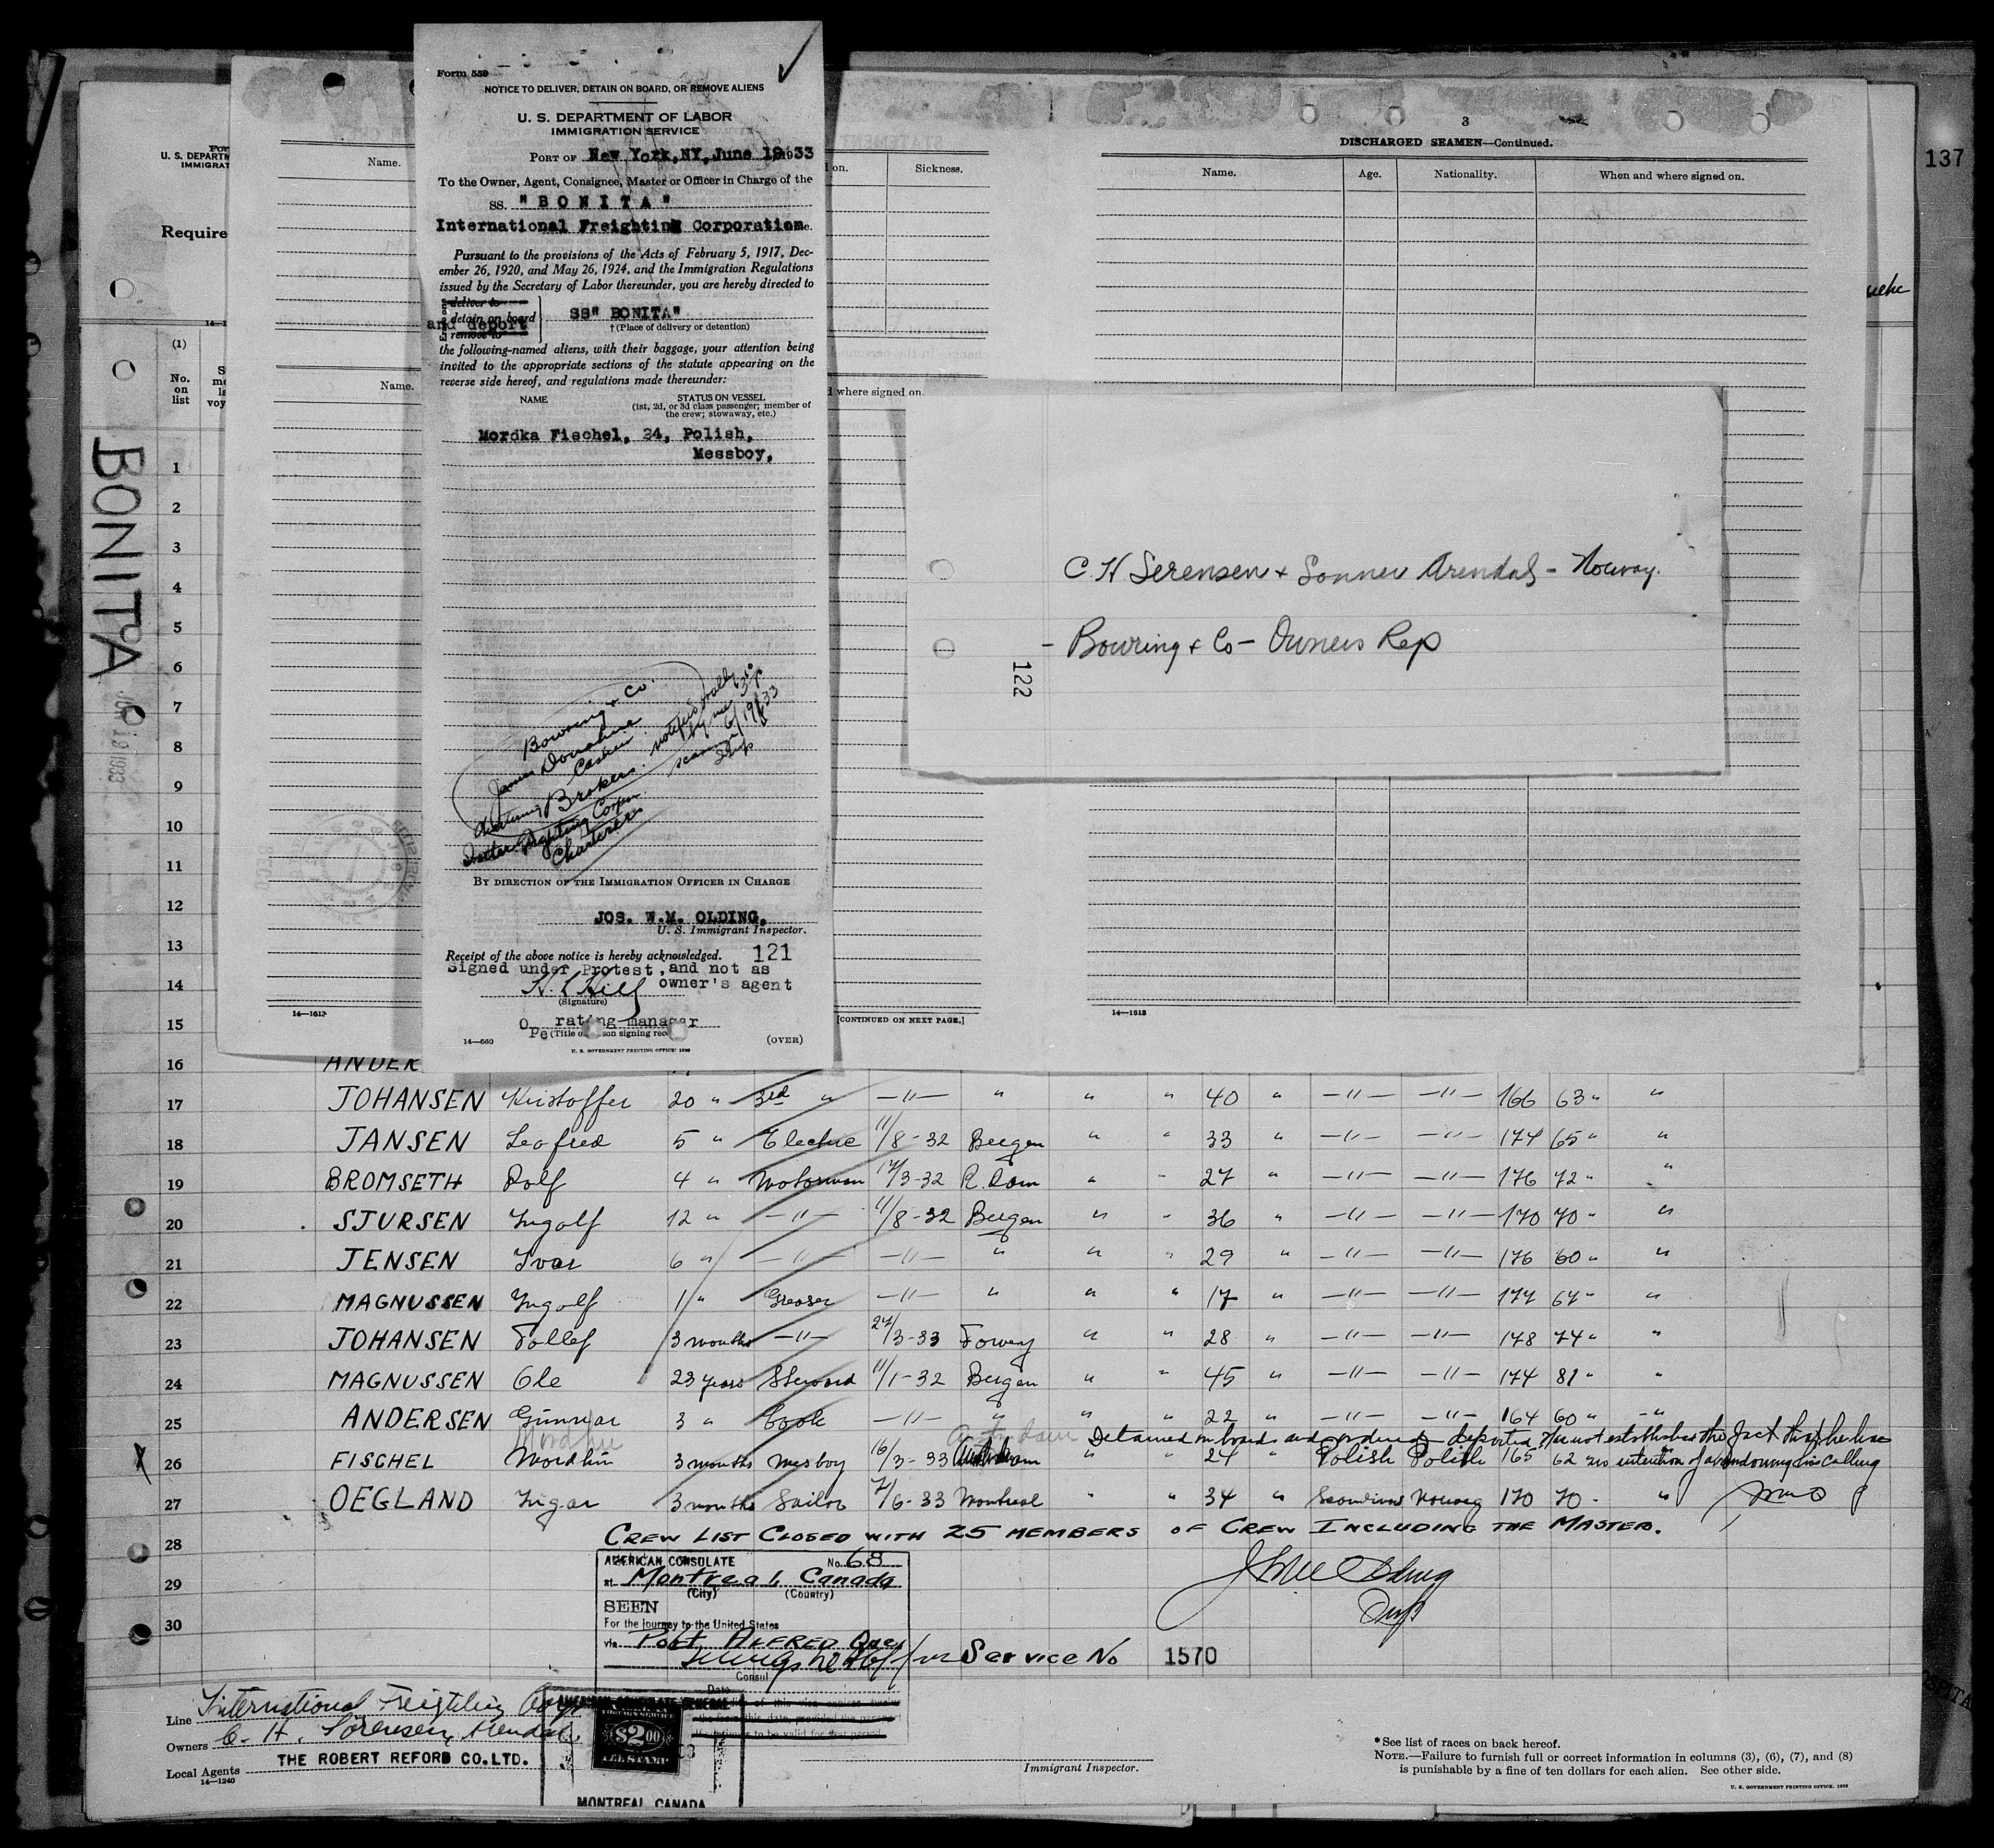 137
Form 559
NOTICE TO DELIVER, DETAIN ON BOARD, OR REMOVE ALIENS
U. S. DEPARTMENT OF LABOR
IMMIGRATION SERVICE
PORT OF New York, NY, June 19, 1933
To the Owner, Agent, Consignee, Master or Officer in Charge of the
SS. "BONITA"
International Freighting Corporation
Pursuant to the provisions of the Acts of February 5, 1917, Dec-
ember 26, 1920, and May 26, 1924, and the Immigration Regulations
issued by the Secretary of Labor thereunder, you are hereby directed to
deliver to
detain on board
and deport
remove to
SS" BONITA"
† (Place of delivery or detention)
the following-named aliens, with their baggage, your attention being
invited to the appropriate sections of the statute appearing on the
reverse side hereof, and regulations made thereunder:
NAME
STATUS ON VESSEL
(1st, 2d, or 3d class passenger; member of
the crew; stowaway, etc.)
Mordka Fischel, 24, Polish,
Messboy,
Bowring & Co.
James Donahue
Cashier
notified orally
by me
6/19/33
Brokers
Inter. Frghting Corpn.
Charterers
BY DIRECTION OF THE IMMIGRATION OFFICER IN CHARGE
JOS. W.M. OLDING,
U. S. Immigrant Inspector.
Receipt of the above notice is hereby acknowledged. 121
Signed under Protest, and not as
owner's agent
(Signature)
Operating manager
14—660
(OVER)
U. S. GOVERNMENT PRINTING OFFICE: 1930
U. S. DEPARTM
IMMIGRAT
Require
(1)
No.
on
list
Name.
Name.
on.
Sickness.
where signed on.
14—1613
[CONTINUED ON NEXT PAGE.]
3
DISCHARGED SEAMEN—Continued.
Name. Age. Nationality. When and where signed on.
14—1613
C. H Serensen & Sonner Arendal - Norway.
- Bowring & Co - Owners Rep
122
BONITA
JUN 19 1933
1
2
3
4
5
6
7
8
9
10
11
12
13
14
15
16 ANDER
17 JOHANSEN Kristoffer 20 " 3rd " —"— " " " 40 " —"— —"— 166 63 " "
18 JANSEN Leofred 5 " Electric 11/8-32 Bergen " " 33 " —"— —"— 174 65 " "
19 BROMSETH Rolf 4 " Motorman 17/3-32 R.dam " " 27 " —"— —"— 176 72 " "
20 SJURSEN Ingolf 12 " —"— 11/8-32 Bergen " " 36 " —"— —"— 170 70 " "
21 JENSEN Ivar 6 " —"— —"— " " " 29 " —"— —"— 176 60 " "
22 MAGNUSSEN Ingolf 1 " Greaser —"— " " " 17 " —"— —"— 174 64 " "
23 JOHANSEN Tollef 3 months —"— 24/3-33 Fowey " " 28 " —"— —"— 178 74 " "
24 MAGNUSSEN Ole 23 years Steward 11/1-32 Bergen " " 45 " —"— —"— 174 81 " "
25 ANDERSEN Gunnar 3 " Cook —"— " " " 22 " —"— —"— 164 60 " —"—
Detained on board and ordered deported. Has not established the fact that he has
26 FISCHEL Mordkin 3 months Mesboy 16/3-33 " " 24 " Polish Polish 165 62 no intention of abandoning his calling
27 OEGLAND Ingar 3 months Sailor 7/6-33 Montreal " " 34 " Scandinav Norweg 170 70 - "
28 CREW LIST CLOSED WITH 25 MEMBERS OF CREW INCLUDING THE MASTER.
29
30
AMERICAN CONSULATE No. 68
at Montreal, Canada
(City) (Country)
SEEN
For the journey to the United States
via Port Alfred Que
Consul
Date
Service No 1570
Line International Freighting Corp
Owners C. H. Sörensen, Arendal
Local Agents THE ROBERT REFORD CO. LTD.
14—1240
AMERICAN CONSULATE GENERAL
$2.00
MONTREAL CANADA
Immigrant Inspector.
* See list of races on back hereof.
NOTE.—Failure to furnish full or correct information in columns (3), (6), (7), and (8)
is punishable by a fine of ten dollars for each alien. See other side.
U. S. GOVERNMENT PRINTING OFFICE, 1930